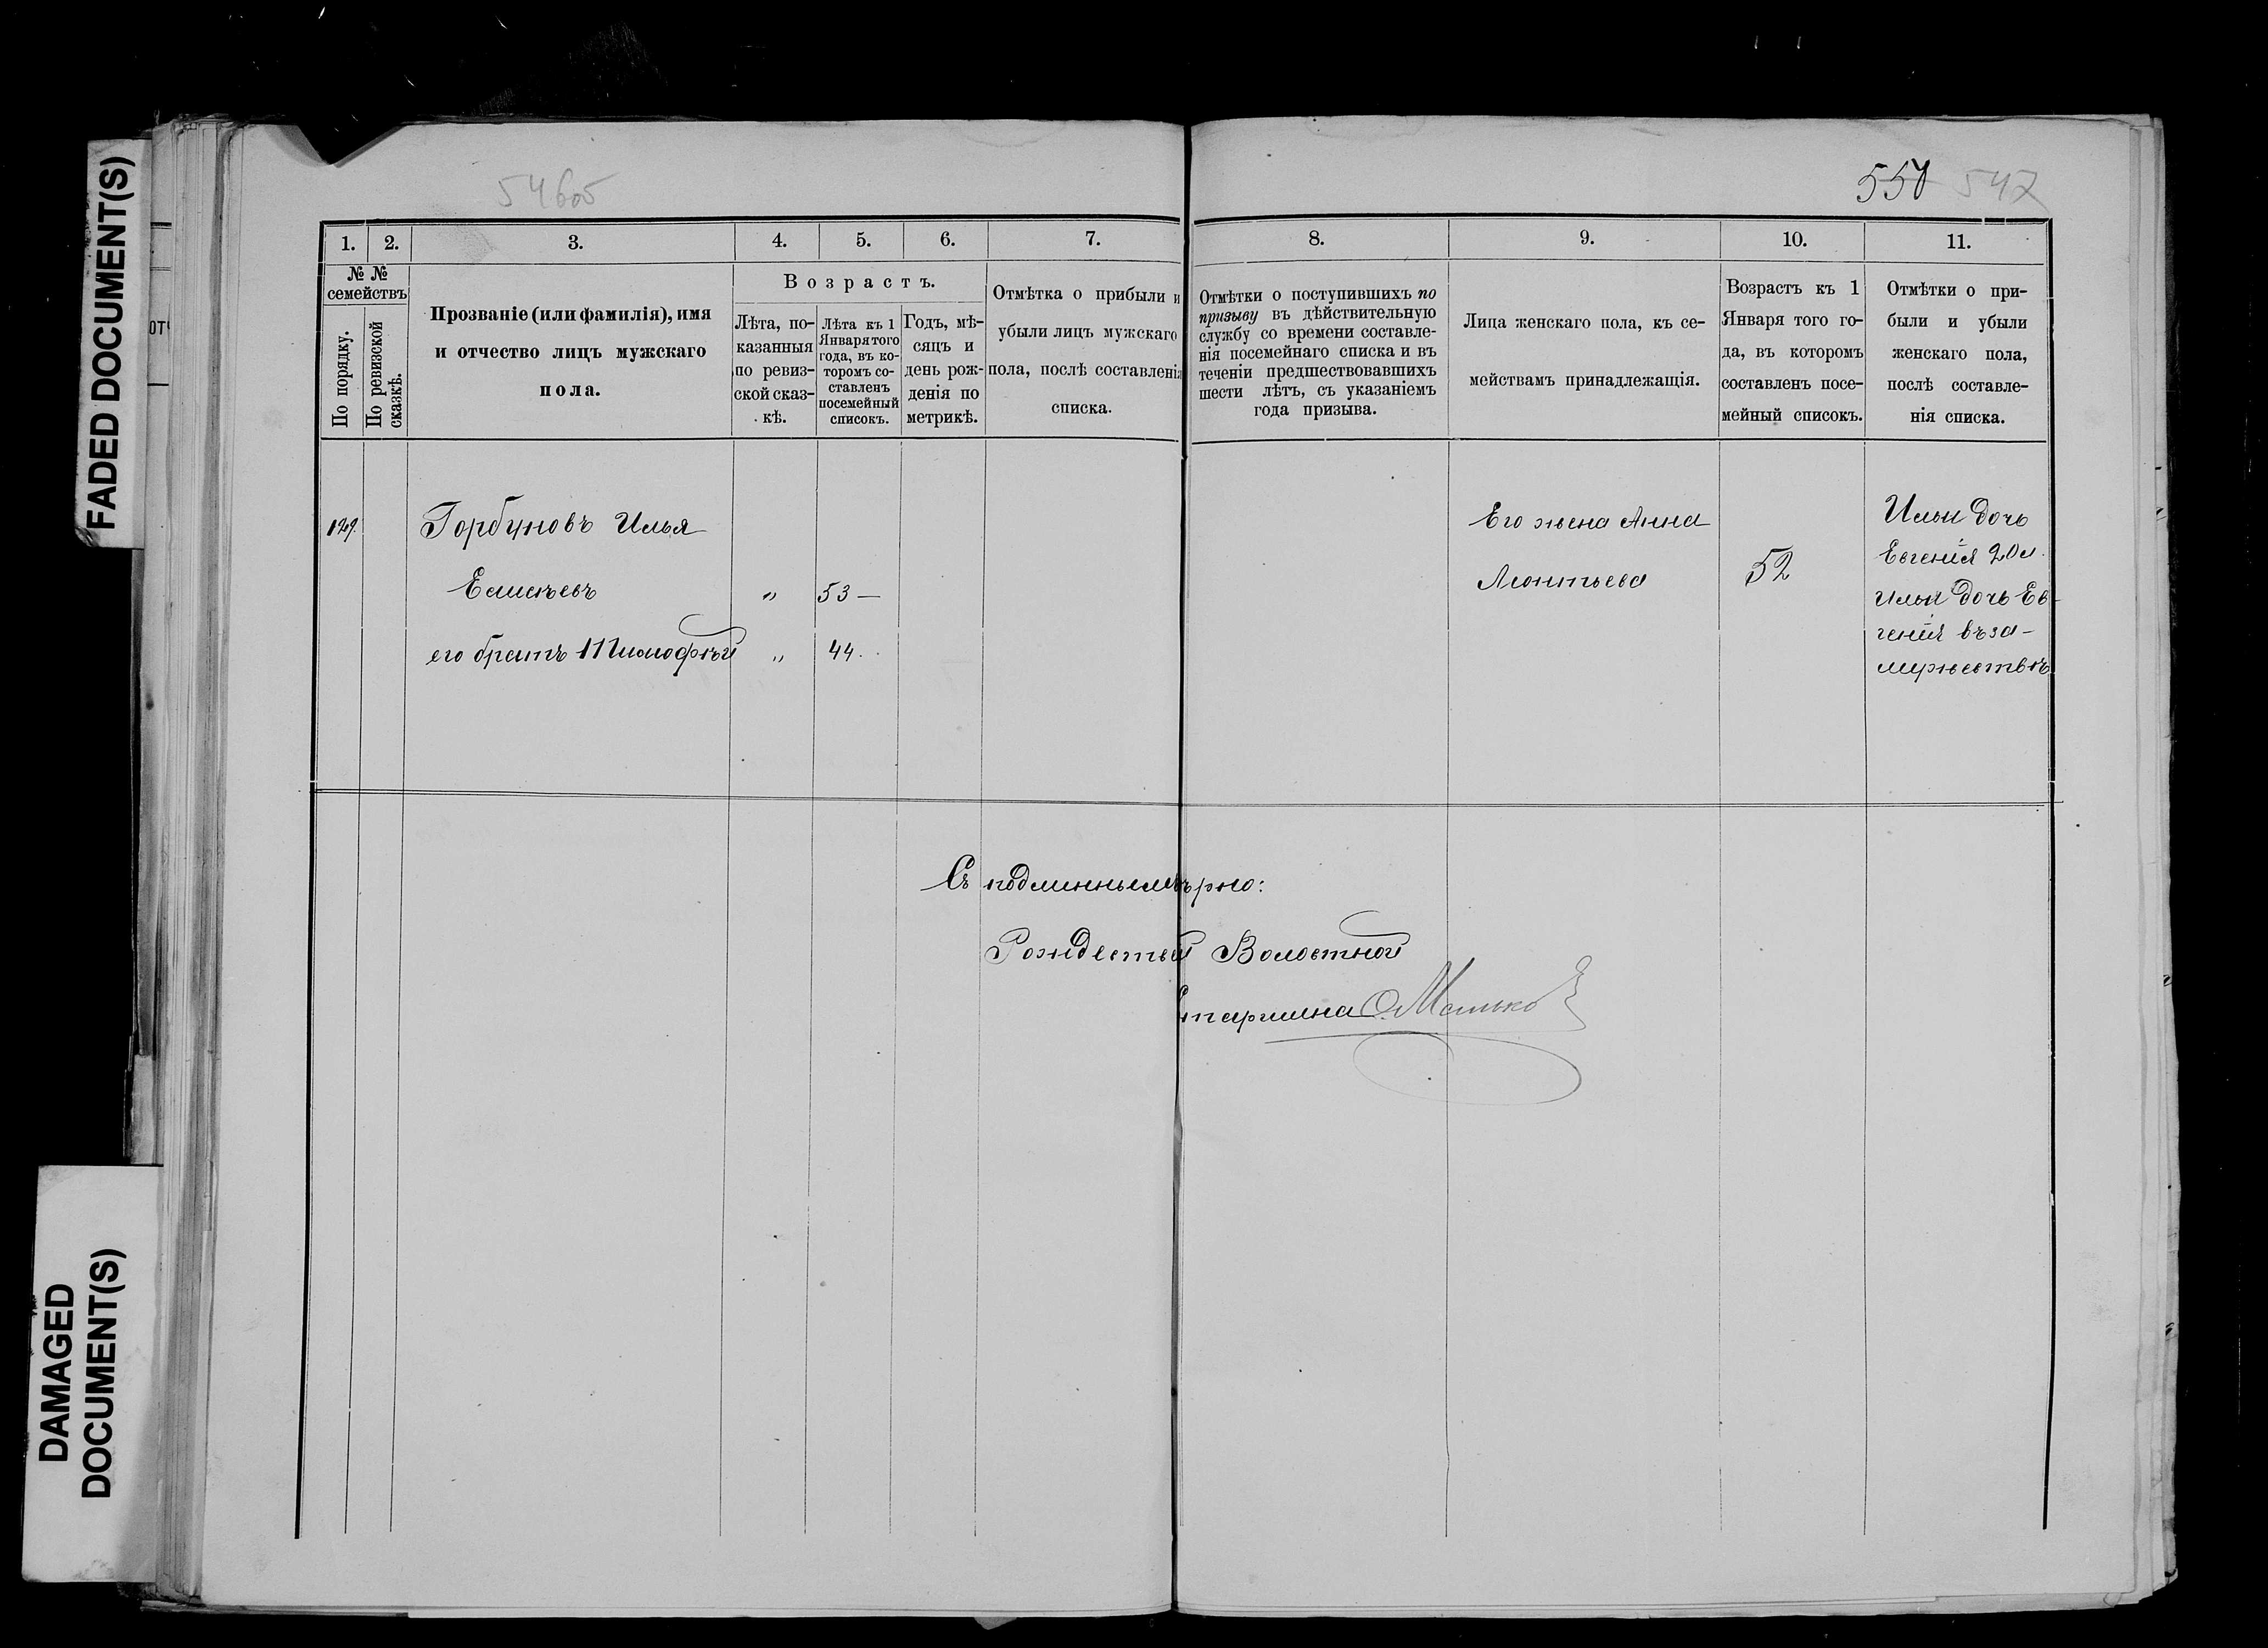 FADED DOCUMENT(S)
DAMAGED
DOCUMENT(S)
54605
550 547
1. 2. 3. 4. 5. 6. 7. 8. 9. 10. 11.
№ №
семействъ
По порядку.
По ревизской
сказкѣ.
Прозваніе (или фамилія), имя
и отчество лицъ мужскаго
пола.
Возрастъ.
Лѣта, по-
казанныя
по ревиз-
ской сказ-
кѣ.
Лѣта къ 1
Января того
года, въ ко-
торомъ со-
ставленъ
посемейный
списокъ.
Годъ, мѣ-
сяцъ и
день рож-
денія по
метрикѣ.
Отмѣтка о прибыли и
убыли лицъ мужскаго
пола, послѣ составленія
списка.
Отмѣтки о поступившихъ по
призыву въ дѣйствительную
службу со времени составле-
нія посемейнаго списка и въ
теченіи предшествовавшихъ
шести лѣтъ, съ указаніемъ
года призыва.
Лица женскаго пола, къ се-
мействамъ принадлежащія.
Возрастъ къ 1
Января того го-
да, въ которомъ
составленъ посе-
мейный списокъ.
Отмѣтки о при-
были и убыли
женскаго пола,
послѣ составле-
нія списка.
129. Горбуновъ Илья
Елисѣевъ " 53 —
его братъ Тимофѣй " 44.
Его жена Анна
Леонтьева 52
Ильи дочь
Евгенія 20 л.
Ильи дочь Ев-
генія въ за-
мужествѣ
Съ подлиннымъ вѣрно:
Волостной
Старшина